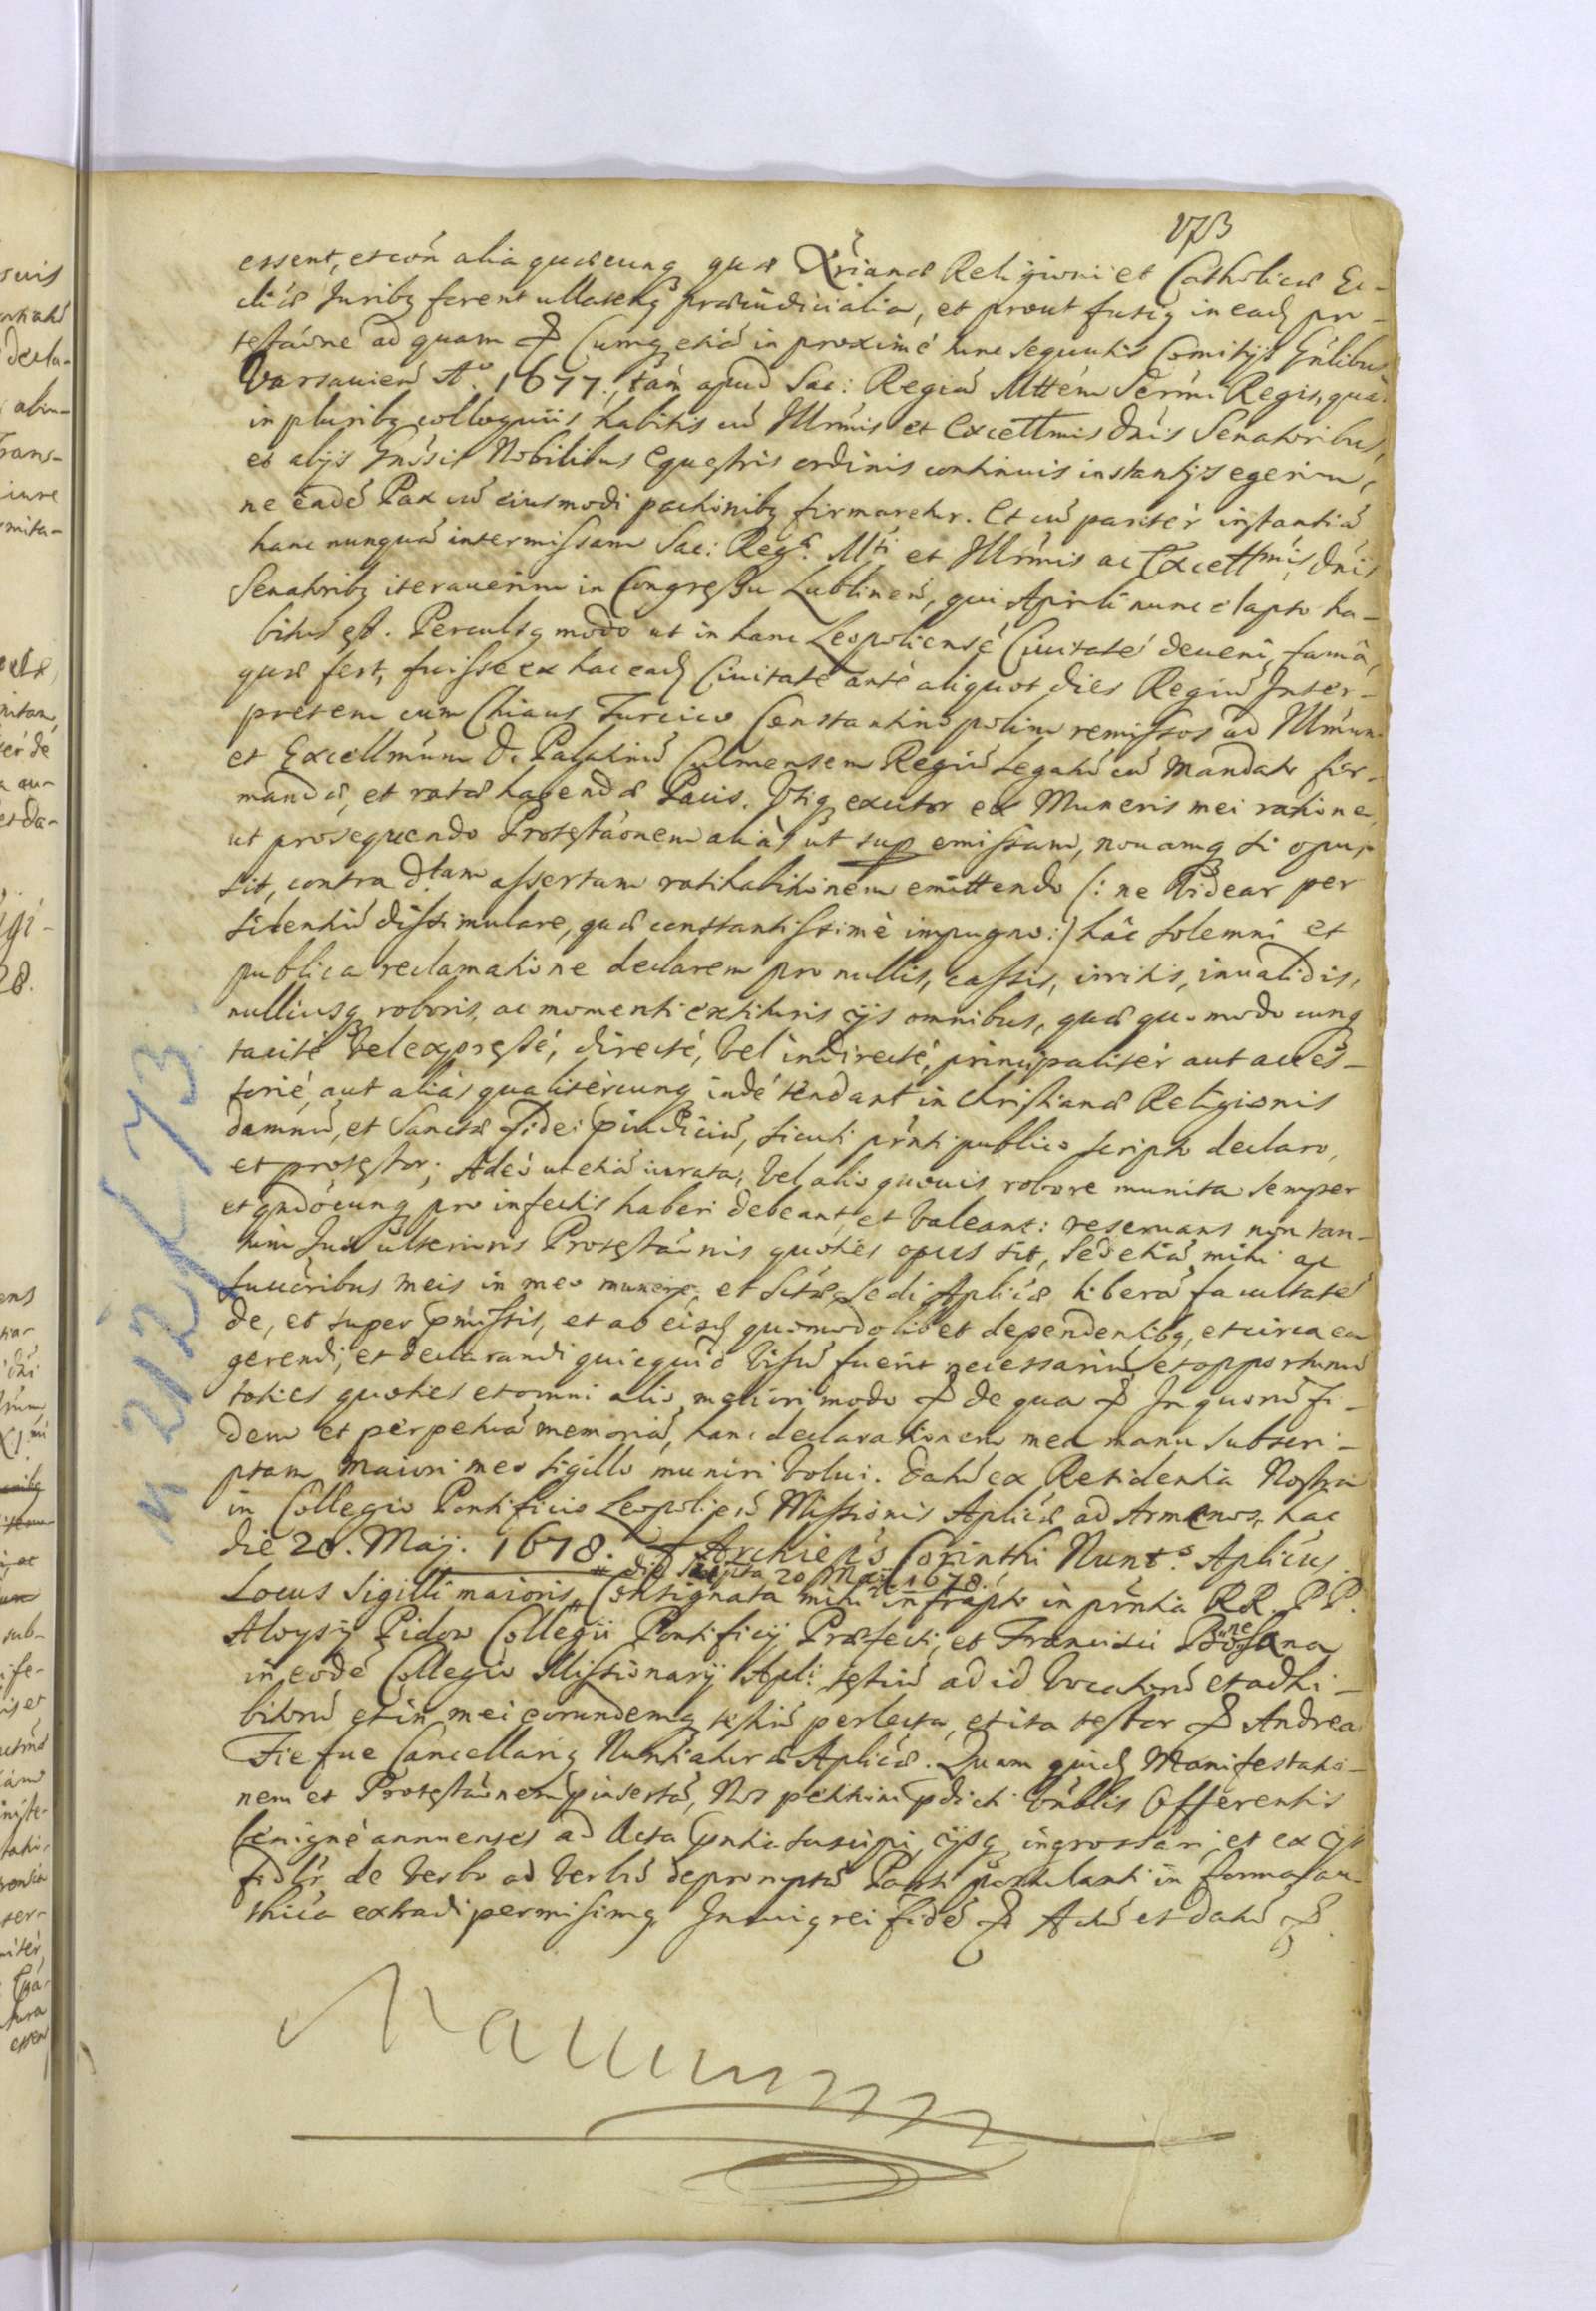 173
essent, et cón alia quæcunq, quæ Xr̃ianæ Religioni et Catholicæ Ec-
cliæ Juribq forent ullatenq præiudicialia, et prout fusiq in eadq pro-
testaóne ad quam &. Cumq etiá in proximé tunc sequutis Comitijs Gńlibus
Varsauień Aº. 1677. tám apud Sac: Regiá Mttém Serḿi Regis, quá
in pluribq colloquiis habitis cú Illrm̃is et Excellmis Dńis Senatoribus,
et alijs Gnósis Nobilibus Equestris ordinis continuis instantijs egerim,
ne eadé Pax cú eiusmodi pactionibq firmaretur. Et cú paritér instantiá
hanc nunquá intermissam Sac: Regę. Mti et Illrḿis ac Excellmis Dńis
Senatoribq iterauerim in Congressu Lublineń, qui Aprili nunc elapso ha-
bitus est. Perculsq modo ut in hanc Leopoliensé Ciuitaté deueni, famâ,
quæ fert, fuisse ex hac eadq Ciuitate anté aliquot dies Regiú Inter-
pretem cum Chiaus Turcico Constantinopolim remissos ad Illmum
et Excellmum D. Palatinú Culmensem Regiú Legatú cú Mandato fir-
mandæ, et ratæ hagendæ Pacis. Vtiq excitor ex Muneris mei ratione,
ut prosequendo Protestaónem aliàs ut sup emissam, nouamq si opus
sit, contra dtam assertam ratihabitionem emittendo (: ne Videar per
silentiú dissimulare, quæ constantissimè impugno:) hâc solemni et
publica reclamatione declarem pro nullis, cassis, irritis, inualidis,
nulliusq roboris, ac momenti extituris ijs omnibus, quæ quomodocunq
tacité Vel expressé, directé, Vel indirecté, principalitér aut acces-
sorié, aut aliás qualitércunq indé tendant in Christianæ Religionis
damnú, et Sanctæ Fidei piudiciú, sicuti pŕnti publico scripto declaro,
et protestor; Adeó ut etiá iurata, Vel alio quouis robore munita semper
et qndócunq pro infectis haberi debeant, et Valeant: reseruans non tan-
tum Jus ulterioris Protestaónis quóties opus sit, séd etiá mihi ac
succóribus meis in meo munere, et Sctæ Sedi Aplicæ liberá facultaté
de, et super pmissis, et ab eisdq quomodolibet dependentibq, et circa ea
gerendi, et declarandi quicquid Visú fuerit necessariú, et opportunú
toties quoties et omni alio meliori modo & de qua & In quorú fi-
dem et perpetuá memoriá, hanc declarationem mea manu subscri-
ptam maiori meo sigillo muniri Volui. Datú ex Residentia Nostra
in Collegio Pontificio Leopolień Missionis Aplicæ ad Armenos, hac
die 20. Maij. 1678. F Archiepús Corinthi Nunt.s Aplicús.
# die scripta 20 Maij 1678.
Locus Sigilli maioris # Consignata mihi infrapto in pŕntia RR. PP.
Aloysij Pidou Collegii Pontificij Præfecti, et Francisci Bonesana
in eodé Collegio Missionarij Apli: testiú ad id Vocatorú et adhi-
bitorú et in mei eorundemq testiú perlecta, et ita testor & Andreas
Fiefue Cancellariq Nuntiaturæ Aplicæ. Quam quidq Manifestatio-
nem et Protestaónem pinsertá, Nos petitioni pdicti Vúblis Offerentis
benigné annuentes ad Acta pntia suscipi, ijsq ingrossari, et ex ijs
fidlr de Verbo ad Verbú depromptú Parti postulanti in forma au-
thica extradi permisimq In cuiq rei fidé & Actú et Datú &.